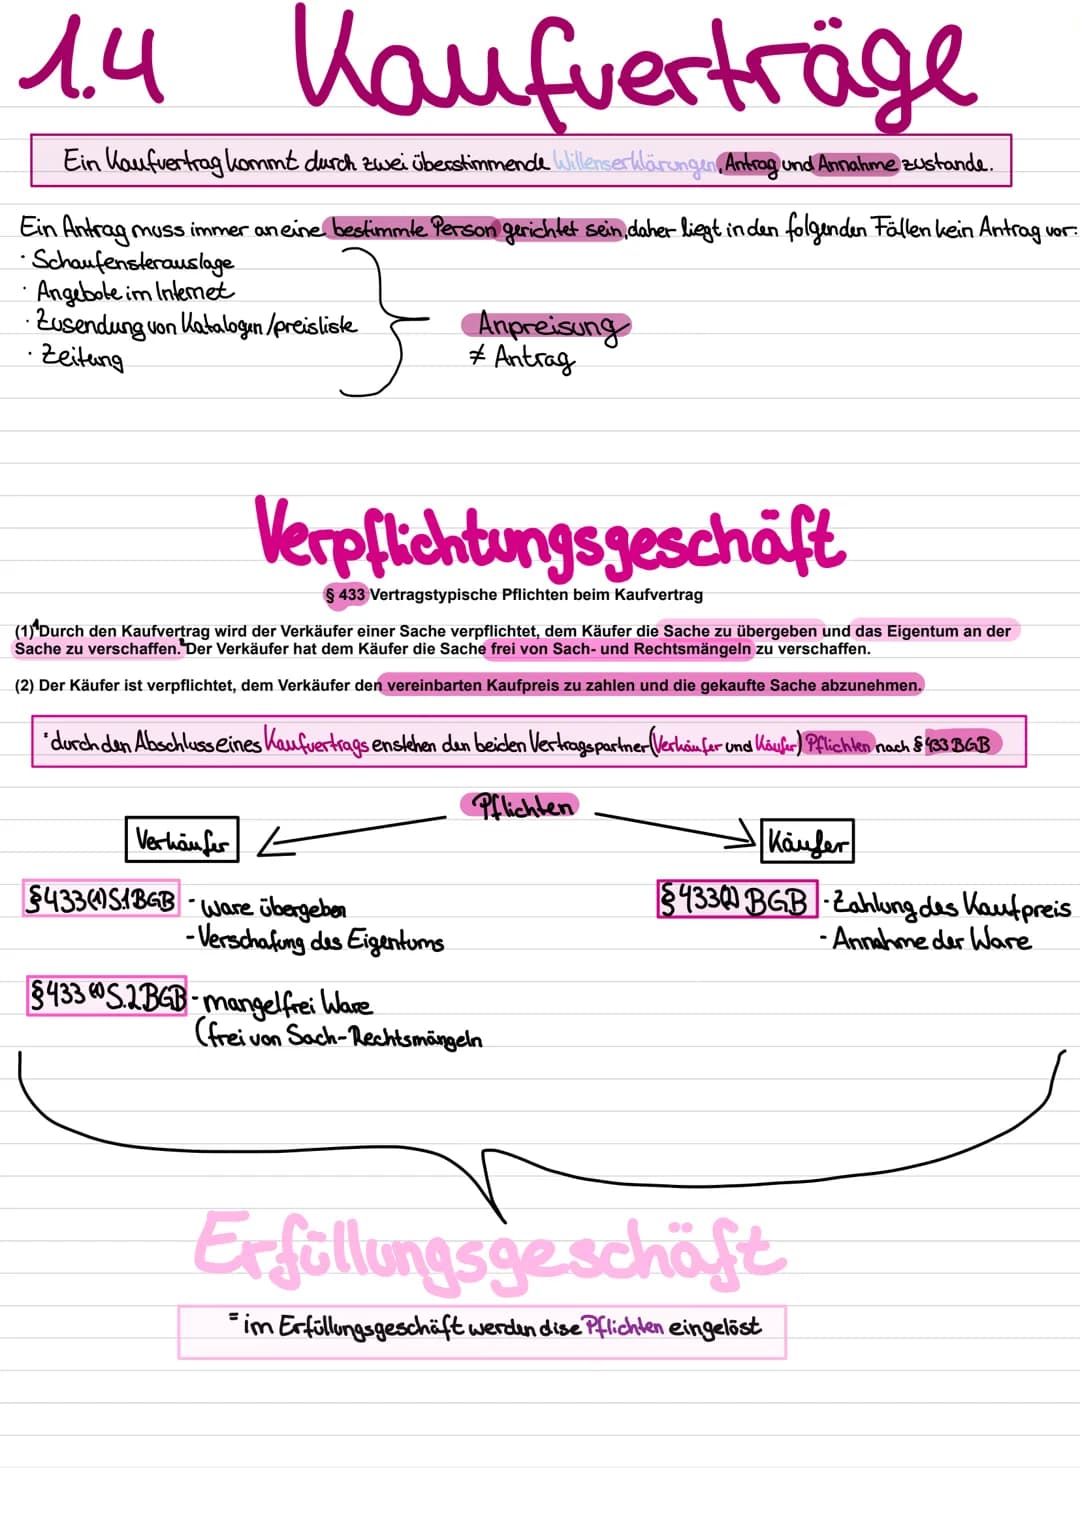 1.4 Kaufverträge
Ein Kaufvertrag kommt durch zwei überstimmende Willenserklärungen, Antrag und Annahme zustande.
Ein Antrag muss immer an eine bestimmte Person gerichtet sein, daher liegt in den folgenden Fällen kein Antrag vor:
· Schaufensterauslage
· Angebote im Internet
· Zusendung von Katalogen/preisliste
· Zeitung
Anpreisung
≠ Antrag
Verpflichtungsgeschäft
§ 433 Vertragstypische Pflichten beim Kaufvertrag
(1) 1 Durch den Kaufvertrag wird der Verkäufer einer Sache verpflichtet, dem Käufer die Sache zu übergeben und das Eigentum an der
Sache zu verschaffen. Der Verkäufer hat dem Käufer die Sache frei von Sach- und Rechtsmängeln zu verschaffen.
(2) Der Käufer ist verpflichtet, dem Verkäufer den vereinbarten Kaufpreis zu zahlen und die gekaufte Sache abzunehmen.
* durch den Abschluss eines Kaufvertrags enstehen den beiden Vertragspartner (Verkäufer und Käufer) Pflichten nach § 433 BGB
Pflichten
Verkäufer
Käufer
§433(1)S.1BGB - Ware übergeben
- Verschafung des Eigentums
§433(1)S.2BGB - mangelfrei Ware
(frei von Sach-Rechtsmängeln
§433(2) BGB - Zahlung des Kaufpreis
- Annahme der Ware
Erfüllungsgeschäft
= im Erfüllungsgeschäft werden dise Pflichten eingelöst